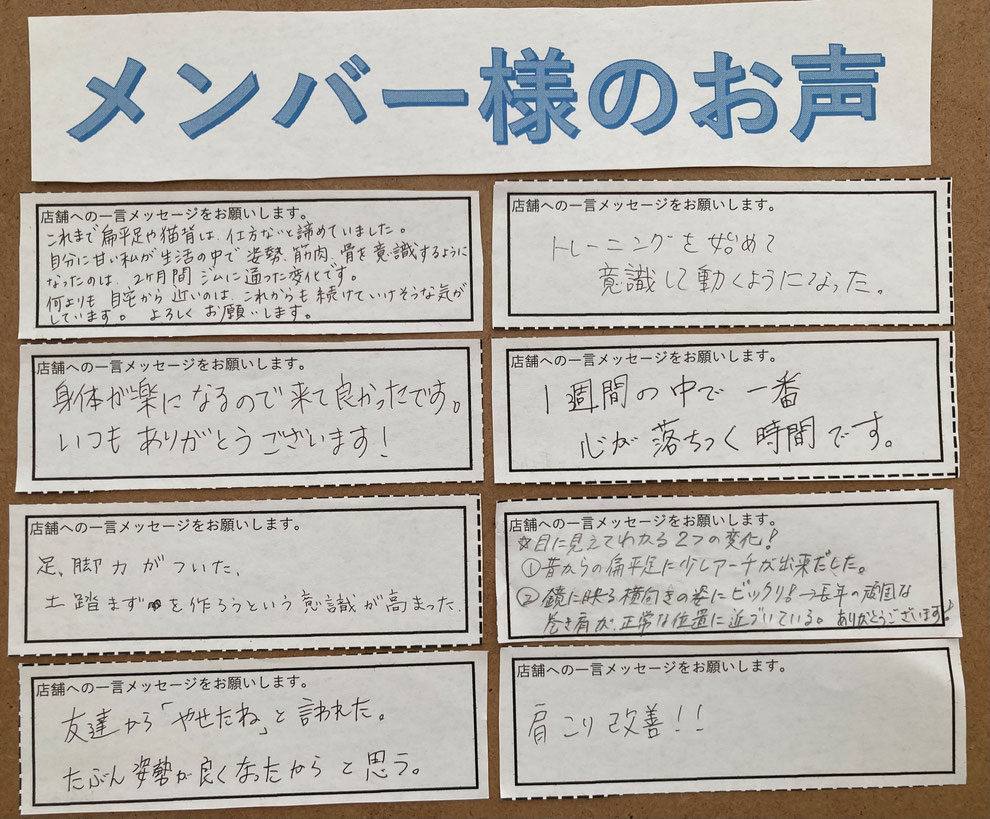 メンバー様のお声
店舗への一言メッセージをお願いします。
これまで扁平足や猫背は、仕方ないと諦めていました。
自分に甘い私が生活の中で姿勢、筋肉、骨を意識するように
なったのは、2ヶ月間ジムに通った変化です。
何よりも自宅から近いのは、これからも続けていけそうな気が
しています。よろしくお願いします。
店舗への一言メッセージをお願いします。
トレーニングを始めて
意識して動くようになった。
店舗への一言メッセージをお願いします。
身体が楽になるので来て良かったです。
いつもありがとうございます!
店舗への一言メッセージをお願いします。
1週間の中で一番
心が落ちつく時間です。
店舗への一言メッセージをお願いします。
足、脚力がついた、
土踏まずを作ろうという意識が高まった.
店舗への一言メッセージをお願いします。
☆目に見えてわかる2つの変化!
①昔からの扁平足に少しアーチが出来だした。
②鏡に映る横向きの姿にビックリ!→長年の頑固な
巻き肩が、正常な位置に近づいている。ありがとうございます!
店舗への一言メッセージをお願いします。
友達から「やせたね」と言われた。
たぶん姿勢が良くなったからと思う。
店舗への一言メッセージをお願いします。
肩こり改善!!